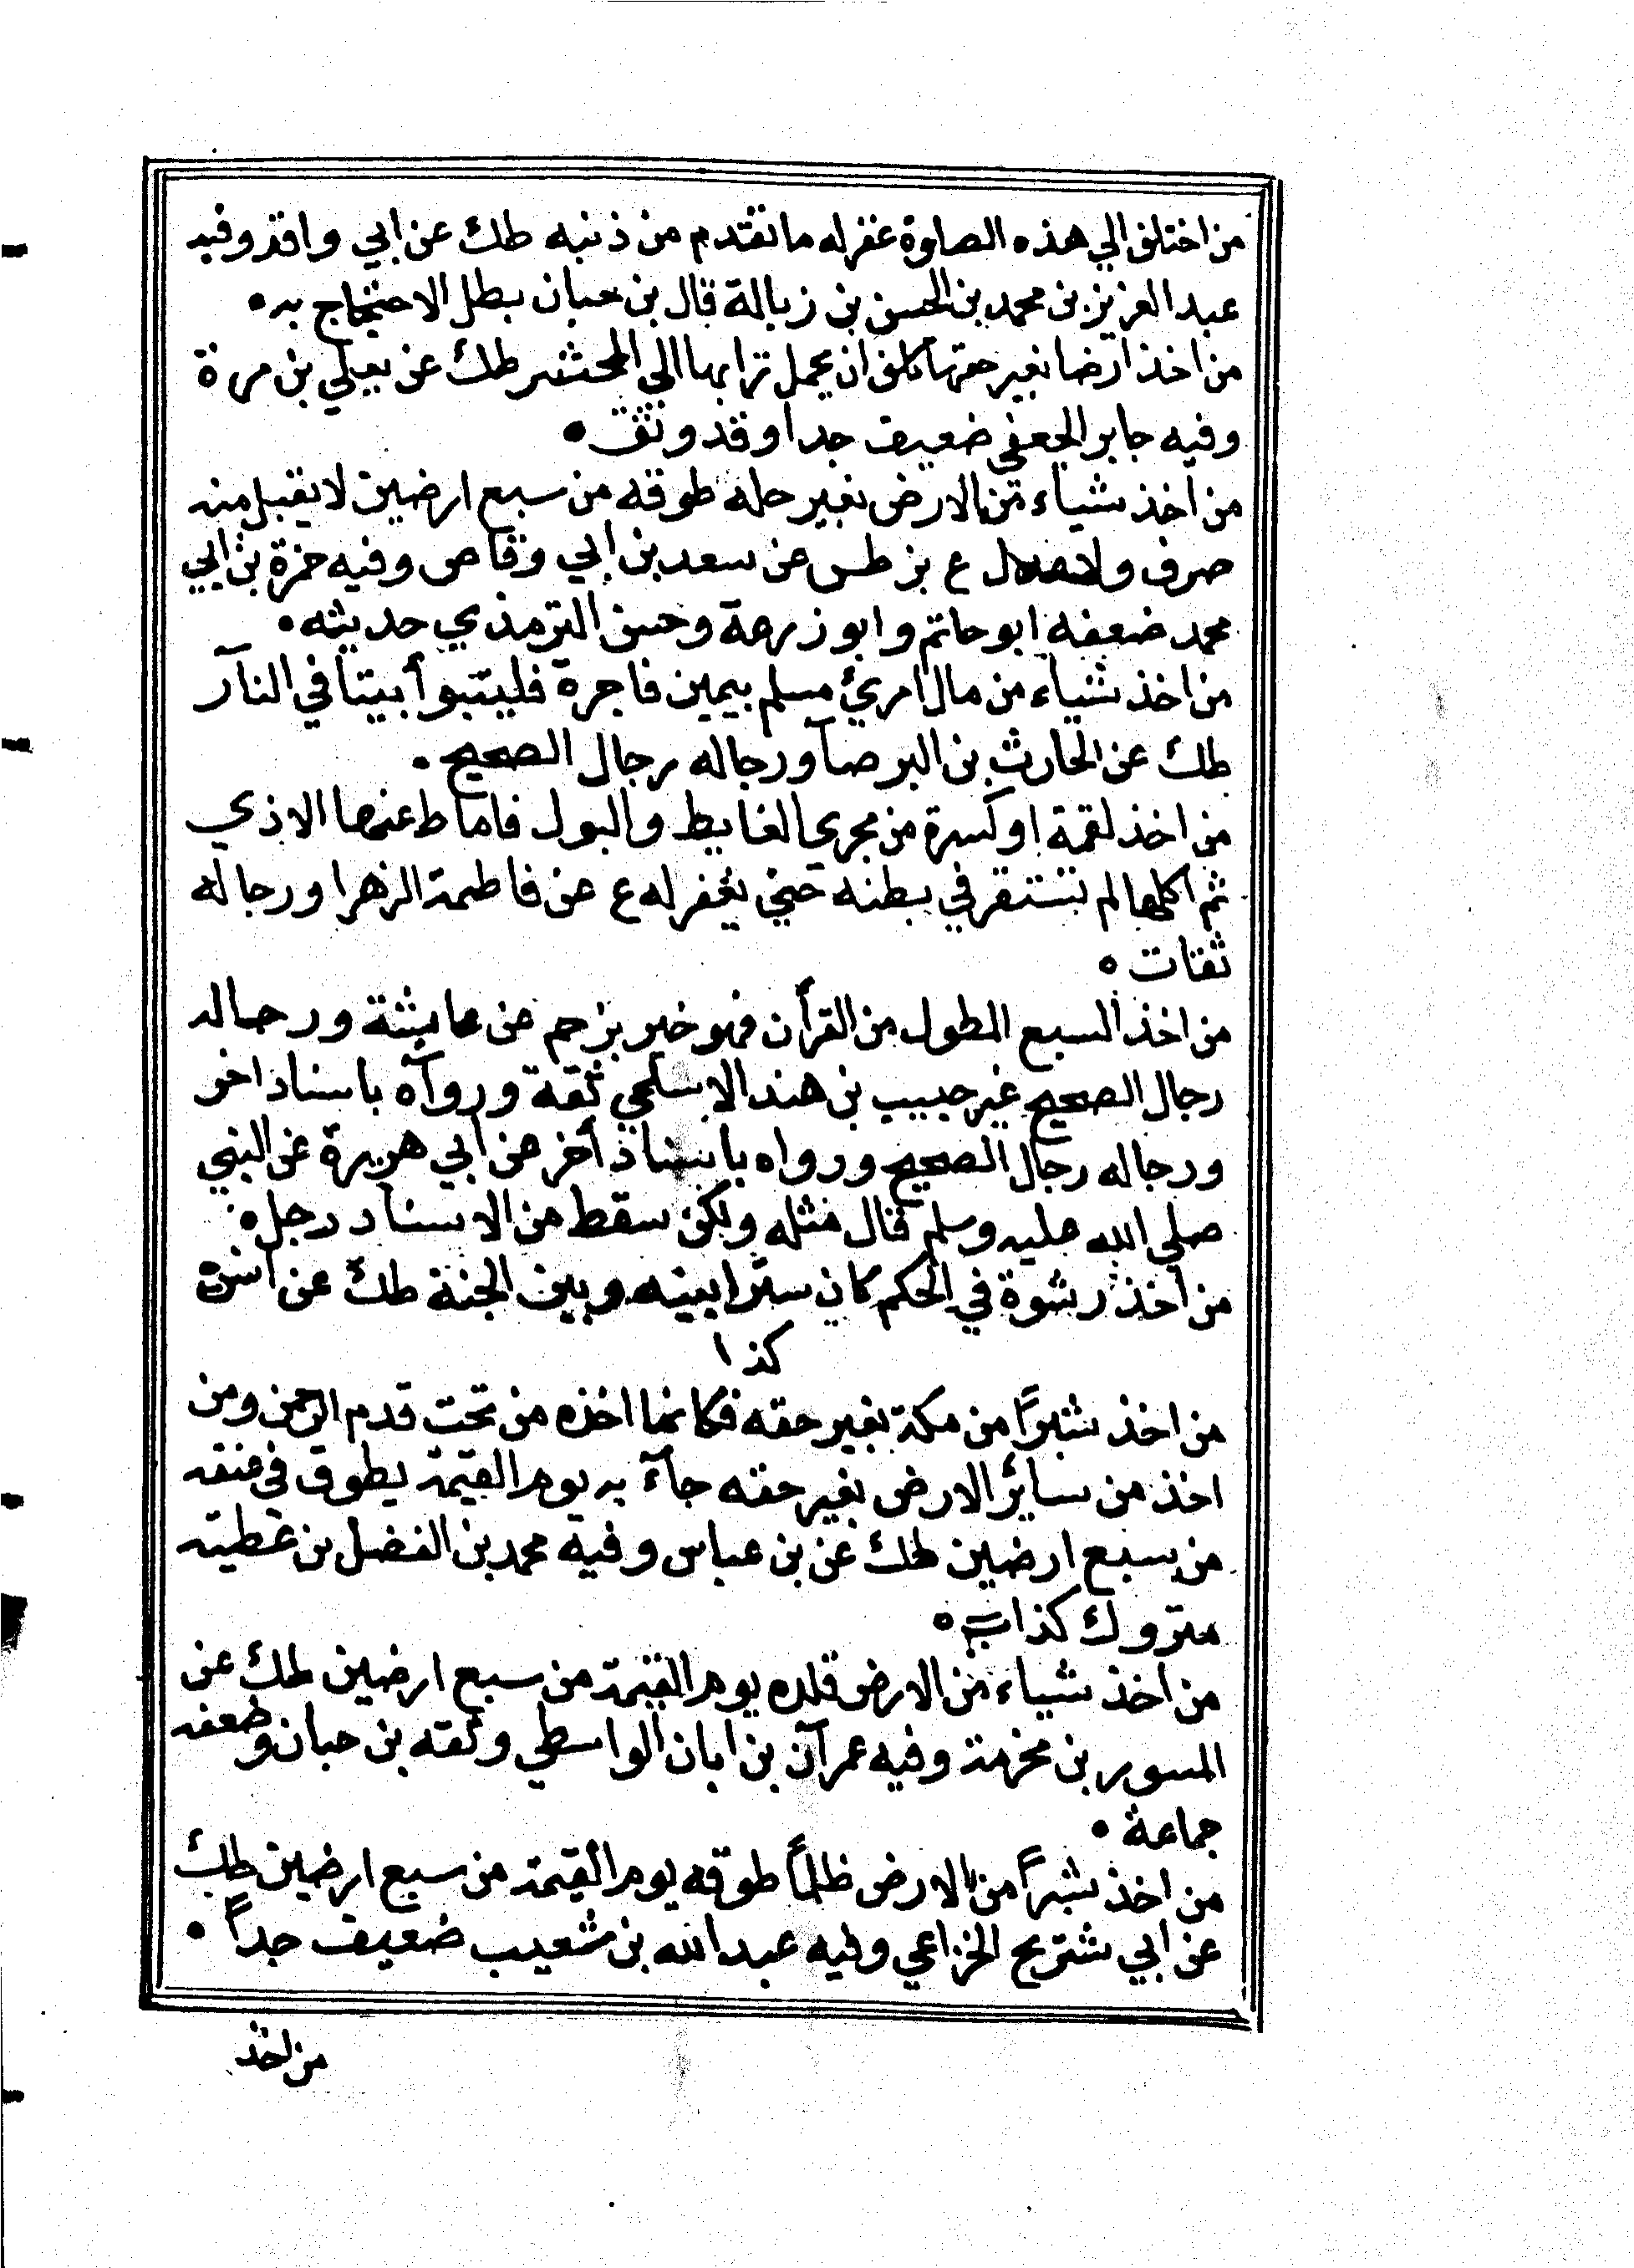 من اختلف الي هذه الصلوة غفر له ما تقدم من ذنبه طك عن ابي واقد وفيه
عبد العزيز بن محمد بن الحسن بن زبالة قال بن حبان بطل الاحتجاج به ه
من اخذ ارضا بغير حقها كلف ان يحمل ترابها الي المحشر طك عن يعلي بن مرة
وفيه جابر الجعفي ضعيف جدا وقد وثق ه
من اخذ شياء من الارض بغير حله طوقه من سبع ارضين لا يقبل منه
صرف ولا عدل ع بز طس عن سعد بن ابي وقاص وفيه حمزة بن ابي
محمد ضعفه ابو حاتم وابو زرعة وحسن الترمذي حديثه ه
من اخذ شياء من مال امرئ مسلم بيمين فاجرة فليتبوأ بيتا في النآر
طك عن الحارث بن البرصآ ورجاله رجال الصحيح ه
من اخذ لقمة او كسرة من مجري الغايط والبول فاماط عنها الاذي
ثم اكلها لم تستقر في بطنه حتي يغفر له ع عن فاطمة الزهرا ورجاله
ثقات ه
من اخذ السبع المطول من القرآن فهو خير بز حم عن عايشة ورجاله
رجال الصحيح غير حبيب بن هند الاسلمي ثقة ورواه باسناد اخر
ورجاله رجال الصحيح ورواه باسناد آخر عن ابي هريرة عن النبي
صلي الله عليه وسلم قال مثله ولكن سقط من الاسناد رجل ه
من اخذ رشوة في الحكم كان سترا بينه وبين الجنة طك عن انس ه
كذا
من اخذ شبرًا من مكة بغير حقه فكانما اخذه من تحت قدم الرحمن ومن
اخذ من سائر الارض بغير حقه جآء به يوم القيمة يطوق في عنقه
من سبع ارضين طك عن بن عباس وفيه محمد بن الفضل بن عطية
متروك كذاب ه
من اخذ شياء من الارض قلده يوم القيمة من سبع ارضين طك عن
المسور بن مخرمة وفيه عمرآن بن ابان الواسطي وثقه بن حبان وضعفه
جماعة ه
من اخذ شبراً من الارض ظلماً طوقه يوم القيمة من سبع ارضين طك
عن ابي شريح الخزاعي وفيه عبد الله بن شعيب ضعيف جداً ه
من اخذ